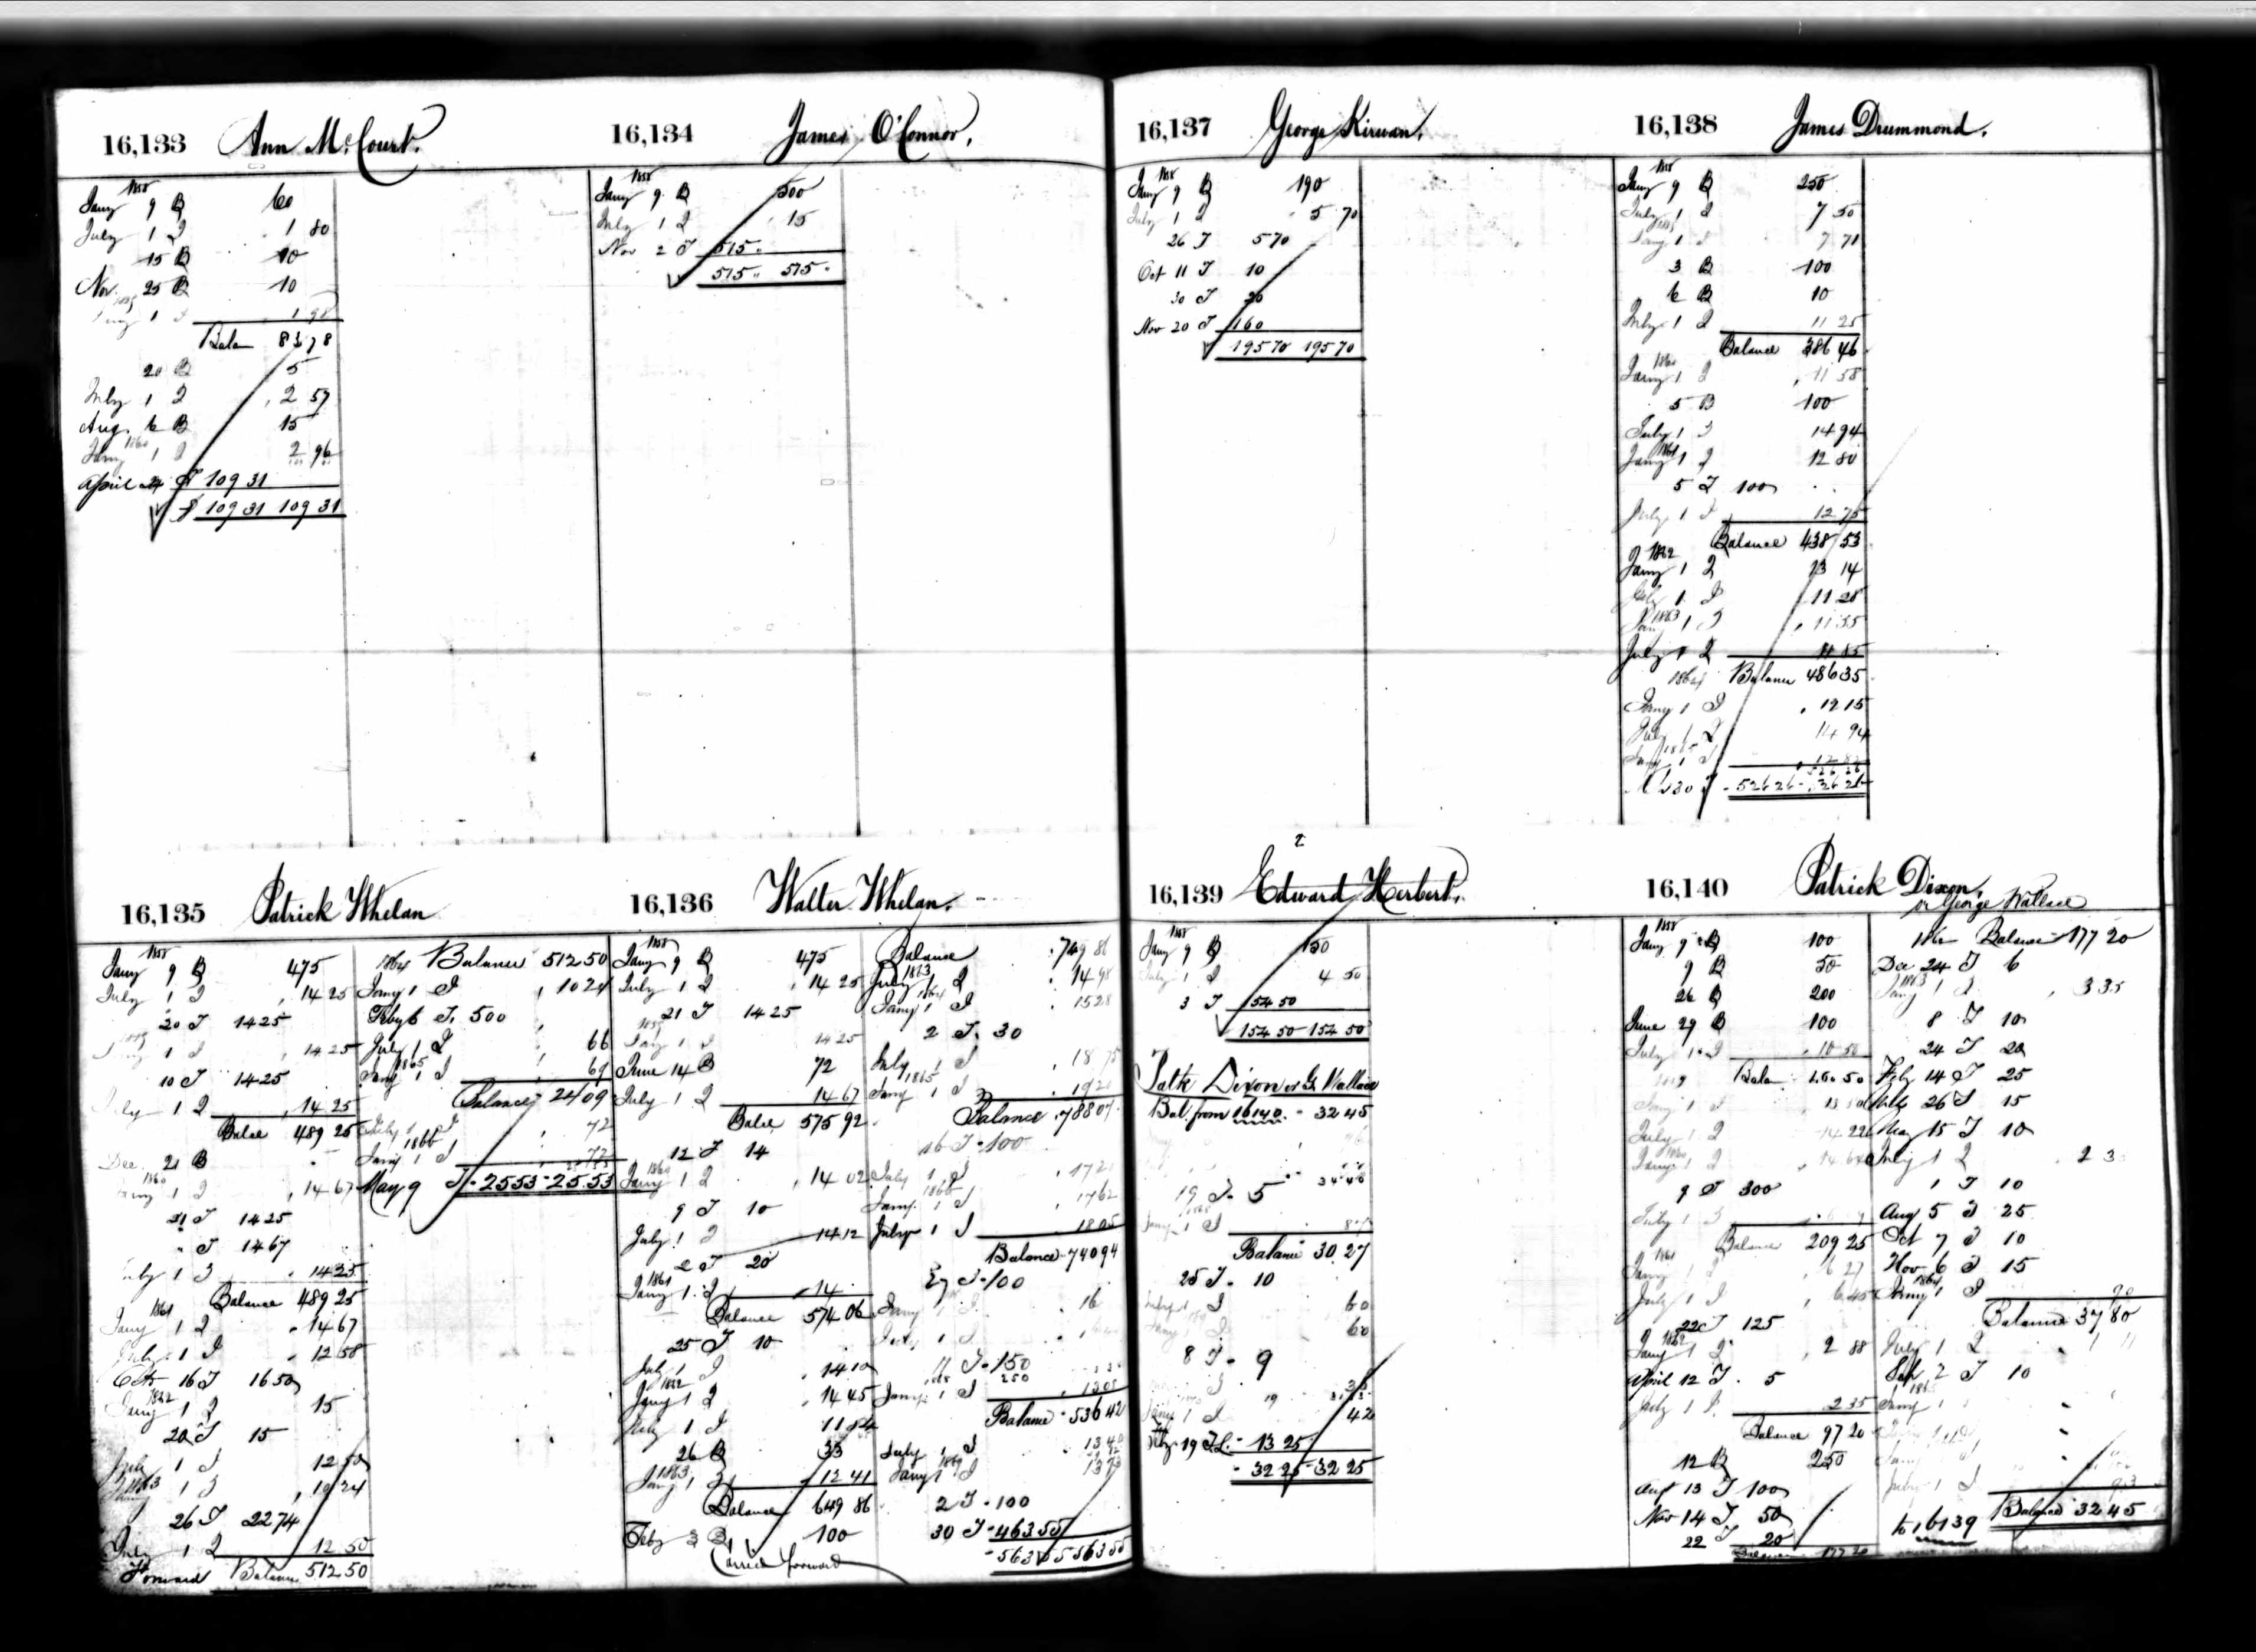 16,133 Ann McCourt.
1858
Jany 9 B 60
July 1 I 1 80
15 B 10
Nov. 25 B 10
1859
Jany 1 I 1 98
Balan 83 78
20 B 5
July 1 I 2 57
Aug. 6 B 15
1860
Jany 1 I 2 96
April 24 T 109 31
$ 109 31 109 31
16,134 James O'Connor,
1858
Jany 9 B 500
July 1 I 15
Nov 2 T 515
515 515
16,135 Patrick Whelan
1858
Jany 9 B 475
July 1 I 14 25
20 T 14 25
1859
Jany 1 I 14 25
10 T 14 25
July 1 I 14 25
Balce 489 25
Dec. 21 B
1860
Jany 1 I 14 67
21 T 14 25
" T 14 67
July 1 I
Balance 489 25
1861
Jany 1 I 14 67
July 1 I 12 58
Octr 16 T 16 50
1862
Jany 1 I 15
20 T 15
July 1 I 12 50
1863
Jany 1 I 10 24
26 T 22 74
July 1 I 12 50
Forward Balance 512 50
1864 Balance 512 50
Jany 1 I 10 24
Feby 6 T. 500
July 1 I 66
1865
Jany 1 I 69
Balance 24 09
July 1 I 72
1866
Jany 1 I 72
May 9 T 25 53 25.53
16,136 Walter Whelan.
1858
Jany 9 B 475
July 1 I 14 25
21 T 14 25
1859
Jany 1 I 14 25
June 14 B 72
July 1 I 14 67
Balce 575 92
12 T 14
1860
Jany 1 I 14 02
9 T 10
July 1 I 14 12
2 T 20
1861
Jany 1 I 14
Balance 574 06
25 T 10
July 1 I 14 10
1862
Jany 1 I 14 45
July 1 I 11 84
26 B 33
1863
Jany 1 I 12 41
Balance 649 86
Feby 3 B 100
Carried forward
Balance 749 86
1863
July 1 I 14 98
1864
Jany 1 I 15 28
2 T. 30
July 1 I 18 75
1865
Jany 1 I 19 20
Balance 788 07
16 T 100
July 1 I 17 21
1866
Jany 1 I 17 62
July 1 I 18 05
Balance 740 94
27 T 100
Jany 1 I 16
July 1 I
11 T 150
250
1868
Jany 1 I 13 08
Balance 536 42
July 1 I 13 40
1869
Jany 1 I 13 73
2 T 100
30 T 463 55
563 55 563 55
16,137 George Kirwan,
1858
Jany 9 B 190
July 1 I 5 70
26 T 5 70
Oct 11 T 10
30 T 20
Nov 20 T 160
195 70 195 70
16,138 James Drummond,
1858
Jany 9 B 250
July 1 I 7 50
1859
Jany 1 I 7 71
3 B 100
6 B 10
July 1 I 11 25
Balance 386 46
1860
Jany 1 I 11 58
5 B 100
July 1 I 14 94
1861
Jany 1 I 12 80
5 T 100
July 1 I 12 75
Balance 438 53
1862
Jany 1 I 13 14
July 1 I 11 28
1863
Jany 1 I 11 55
July 1 I 11 85
Balance 486 35
1864
Jany 1 I 12 15
July 1 I 14 94
1865
Jany 1 I 12 82
526 26
30 T 526 26 526 26
2
16,139 Edward Herbert,
1858
Jany 9 B 150
July 1 I 4 50
3 T 154 50
154 50 154 50
Patk Dixon or G. Wallace
Bal. from 16140 32 45
19 T 5
Jany 1 I 87
Balance 30 27
25 T 10
July 1 I 60
Jany 1 I 60
8 T 9
Jany 1 I 42
13 25
32 25 32 25
16,140 Patrick Dixon,
or George Wallace
1858
Jany 9 B 100
9 B 50
26 B 200
June 29 B 100
July 1 I 10 50
1859 Balan 460 50
Jany 1 I
July 1 I 14 22
1860
Jany 1 I 14 64
9 T 300
July 1 I
Balance 209 25
1861
Jany 1 I 6 27
July 1 I 6 45
22 T 125
1862
Jany 1 I 2 88
April 12 T 5
July 1 I 2 35
Balance 97 20
12 B 250
Aug 13 T 100
Nov 14 T 50
22 T 20
Balance 177 20
1862 Balance 177 20
Dec 24 T 6
1863
Jany 1 I 3 35
8 T 10
24 T 20
Feby 14 T 25
26 T 15
May 15 T 10
July 1 I
1 T 10
Aug 5 T 25
Oct 7 T 10
Nov 6 T 15
1864
Jany 1 I 90
Balance 37 80
July 1 I
Sep 2 T 10
1865
Jany 1
July 1 I 93
to 16139 Balance 32 45